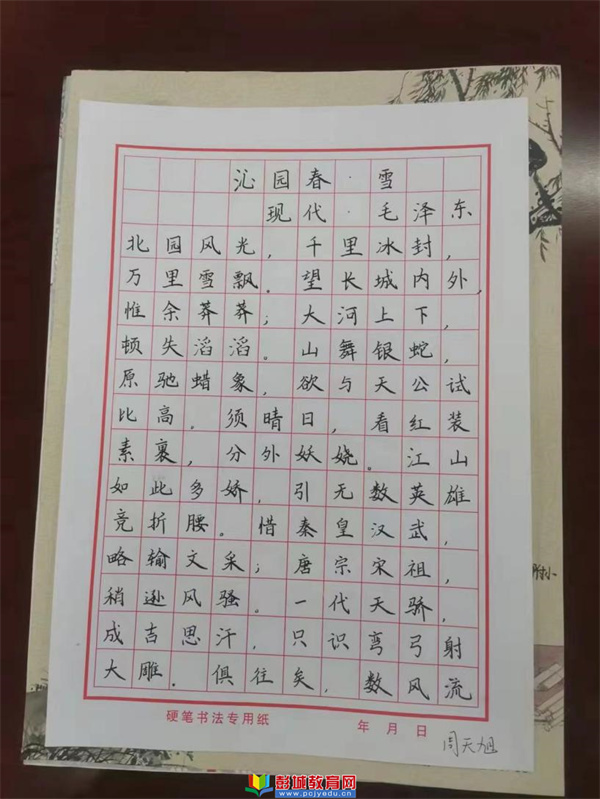 沁园春·雪
现代·毛泽东
北园风光,千里冰封,
万里雪飘。望长城内外,
惟余莽莽;大河上下,
顿失滔滔。山舞银蛇,
原驰蜡象,欲与天公试
比高。须晴日,看红装
素裹,分外妖娆。江山
如此多娇,引无数英雄
竞折腰。惜秦皇汉武,
略输文采;唐宗宋祖,
稍逊风骚。一代天骄,
成吉思汗,只识弯弓射
大雕。俱往矣,数风流
硬笔书法专用纸 年 月 日
周天旭
附小
彭城教育网
www.pcjyedu.cn